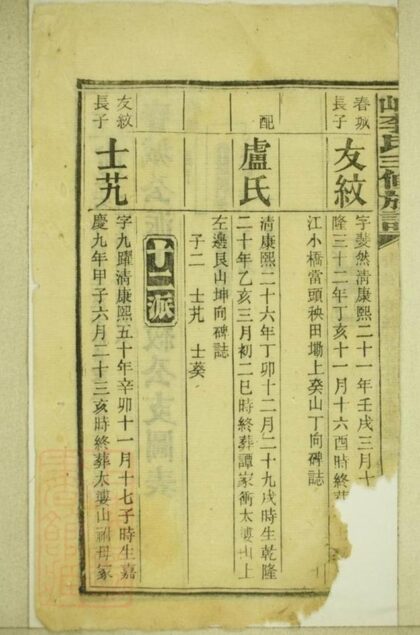 李氏三修族譜
春城
長子
友紋
字斐然清康熙二十一年壬戌三月十
隆三十二年丁亥十一月十六酉時終葬
江小橋當頭秧田塝上癸山丁向碑誌
配
盧氏
清康熙二十六年丁卯十二月二十九戌時生乾隆
二十年乙亥三月初二巳時終葬譚家衝太婁山上
左邊艮山坤向碑誌
子二 士芃 士葵
十二派
友紋
長子
士芃
字九躍清康熙五十年辛卯十一月十七子時生嘉
慶九年甲子六月二十三亥時終葬太婁山祖母冢